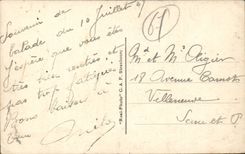 Souvenir de
balade du 10 Juillet
J'espère que vous êtes
très bien rentrés et
pas trop fatigués
Bons baisers à
tous
"Real-Photo" C.A.P. Strasbourg
Mr et Me
18 Avenue Carnot
Villeneuve
Seine et